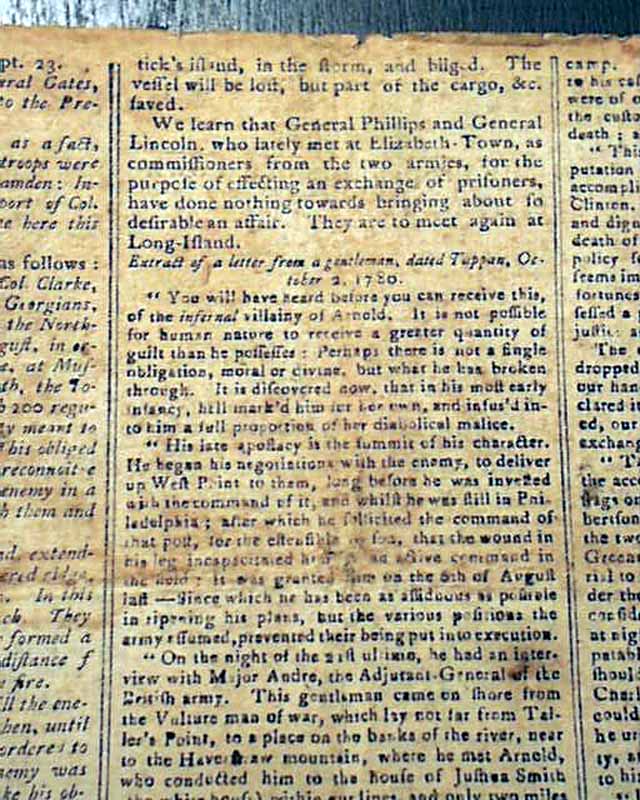 pt. 23.
eral Gates,
to the Pre-
as a fact,
troops were
amden: In-
port of Col.
e here this
as follows:
Col. Clarke,
Georgians,
the North-
gust, in or-
e, at Mus-
th, the To-
200 regu-
ly meant to
his obliged
reconnoitre
enemy in a
h them and
nd extend-
ered ridge,
In this
ch. They
formed a
distance f
fire.
ll the ene-
hen, until
orderes to
nemy was
ke his ob-
tick's island, in the storm, and bilged. The
vessel will be lost, but part of the cargo, &c.
saved.
We learn that General Phillips and General
Lincoln, who lately met at Elizabeth-Town, as
commissioners from the two armies, for the
purpose of effecting an exchange of prisoners,
have done nothing towards bringing about so
desirable an affair. They are to meet again at
Long-Island.
Extract of a letter from a gentleman, dated Tappan, Oc-
tober 2, 1780.
" You will have heard before you can receive this,
of the infernal villainy of Arnold. It is not possible
for human nature to receive a greater quantity of
guilt than he possesses: Perhaps there is not a single
obligation, moral or divine, but what he has broken
through. It is discovered now, that in his most early
infancy, hell mark'd him for her own, and infus'd in-
to him a full proportion of her diabolical malice.
" His late apostacy is the summit of his character.
He began his negotiations with the enemy, to deliver
up West Point to them, long before he was invested
with the command of it, and whilst he was still in Phi-
ladelphia; after which he solicited the command of
that post, for the ostensible reason, that the wound in
his leg incapacitated him an active command in
the field: It was granted him on the 6th of August
last—Since which he has been as assiduous as possible
in ripening his plans, but the various positions the
army assumed, prevented their being put into execution.
" On the night of the 21st ultimo, he had an inter-
view with Major Andre, the Adjutant-General of the
British army. This gentleman came on shore from
the Vulture man of war, which lay not far from Tal-
ler's Point, to a place on the banks of the river, near
to the Haverstraw mountain, where he met Arnold,
who conducted him to the house of Joshua Smith
(the white house) within our lines, and only two miles
camp.
to his
were of
the custo
death;
" This
putation
accompl
Clinton.
and dign
death of
policy
seems im
fortunes
fessed a
justice
The
dropped
our han
clared it
ed, our
exchang
" T
the acco
flags on
bertson
the two
Greene
rial to
der the
confid
at nig
patabl
should
Char
could
he ur
ty, a
to hi